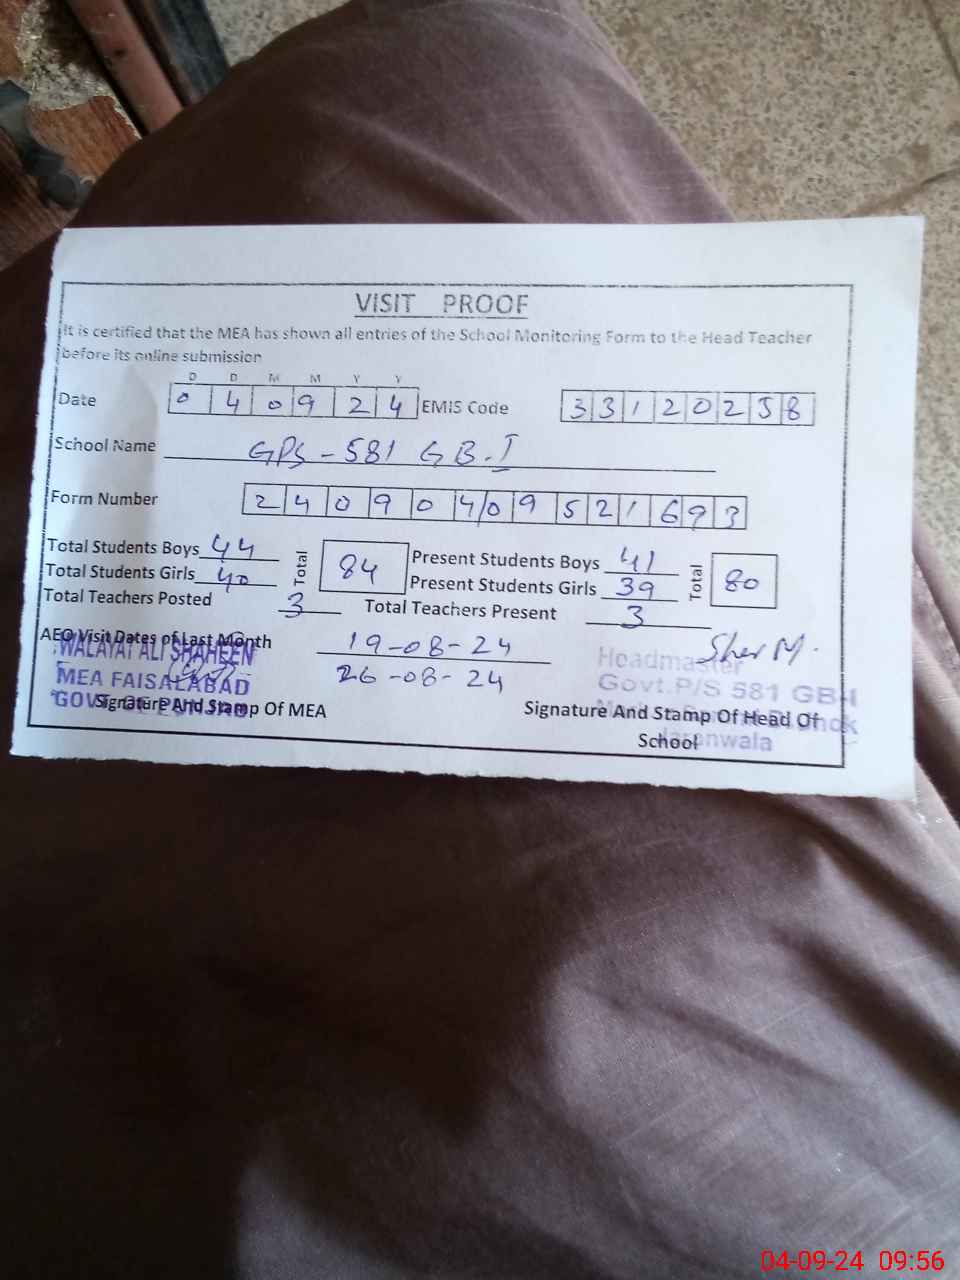 VISIT PROOF
It is certified that the MEA has shown all entries of the School Monitoring Form to the Head Teacher
before its online submission
D D M M Y Y
Date 0 4 0 9 2 4 EMIS Code 3 3 1 2 0 2 5 8
School Name GPS - 581 GB-I
Form Number 2 4 0 9 0 4 0 9 5 2 1 6 9 3
Total Students Boys 44 Total 84 Present Students Boys 41 Total 80
Total Students Girls 40 Present Students Girls 39
Total Teachers Posted 3 Total Teachers Present 3
AEO Visit Dates of Last Month 19-08-24
26-08-24
WALAYAT ALI SHAHEEN
MEA FAISALABAD
GOVT. OF PUNJAB
Signature And Stamp Of MEA
Sher M.
Headmaster
Govt.P/S 581 GB-I
Jaranwala
Signature And Stamp Of Head Of
School
04-09-24 09:56